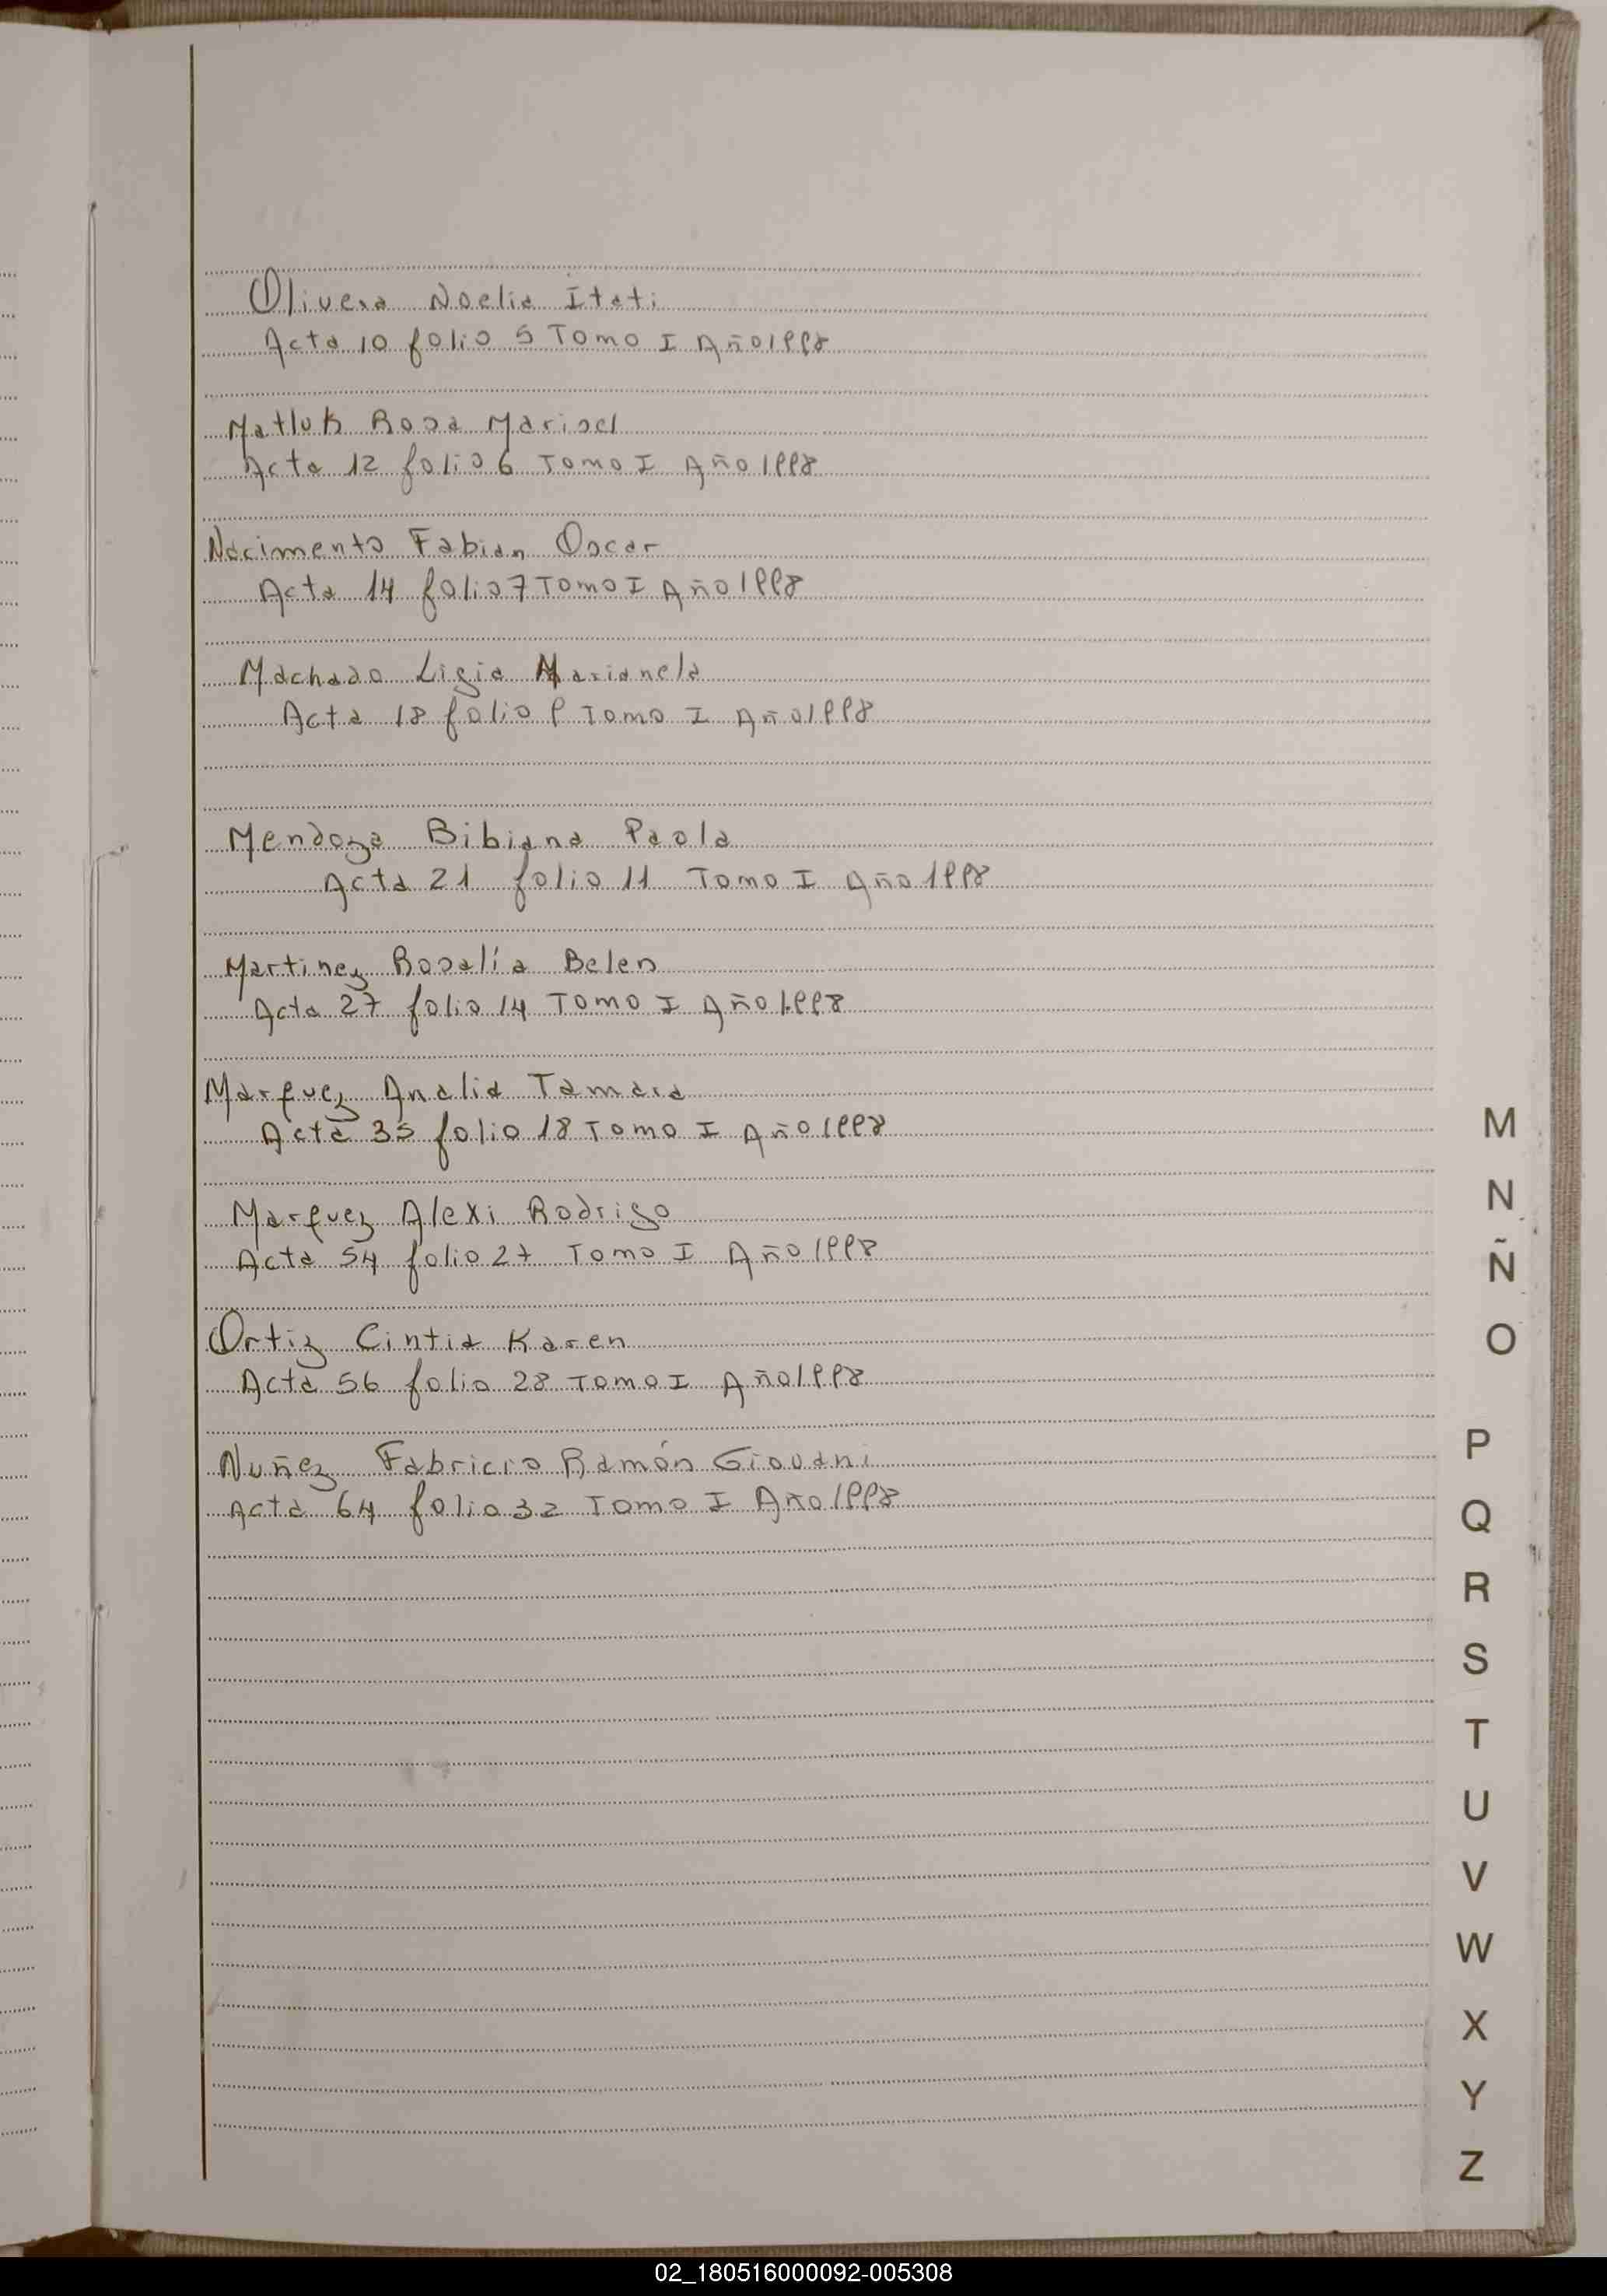 Olivera Noelia Itati
Acta 10 folio 5 Tomo I Año 1998
Matluk Rosa Marisel
Acta 12 folio 6 Tomo I Año 1998
Nacimento Fabian Oscar
Acta 14 folio 7 Tomo I Año 1998
Machado Ligia Marianela
Acta 18 folio 9 Tomo I Año 1998
Mendoza Bibiana Paola
Acta 21 folio 11 Tomo I Año 1998
Martinez Rosalía Belen
Acta 27 folio 14 Tomo I Año 1998
Marquez Analia Tamara
Acta 35 folio 18 Tomo I Año 1998
Marquez Alexi Rodrigo
Acta 54 folio 27 Tomo I Año 1998
Ortiz Cintia Karen
Acta 56 folio 28 Tomo I Año 1998
Nuñez Fabricio Ramón Giovani
Acta 64 folio 32 Tomo I Año 1998
M
N
Ñ
O
P
Q
R
S
T
U
V
W
X
Y
Z
02_180516000092-005308